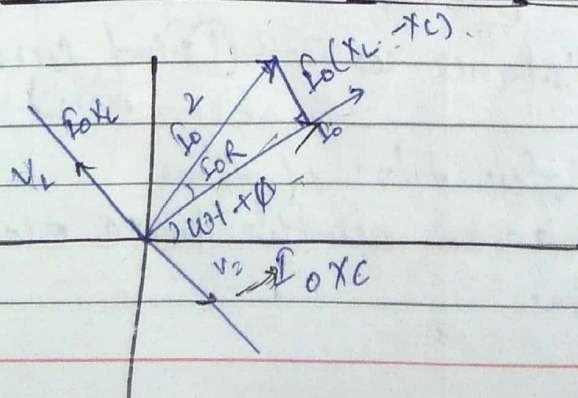 I₀(X_L - X_C).
I₀X_L
I₀Z
I₀R
I₀
V_L
ωt + φ
V₂
I₀ XC